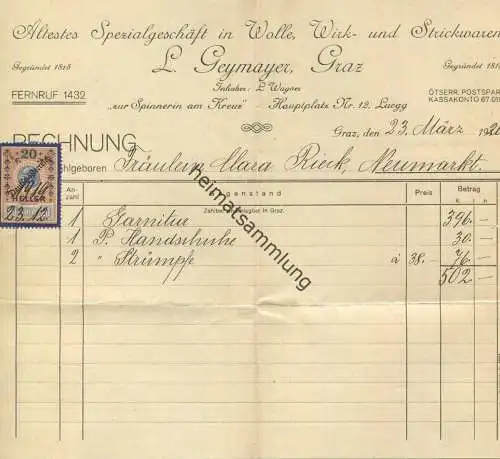 Ältestes Spezialgeschäft in Wolle, Wirk- und Strickwaren
Gegründet 1815 L. Geymayer, Graz Gegründet 181
FERNRUF 1432 Inhaber: L. Wagner ÖTSERR. POSTSPAR
KASSAKONTO 67.0
"zur Spinnerin am Kreuz" - Hauptplatz Nr. 12, Luegg
RECHNUNG Graz, den 23. März 1920
hlgeboren Fräulein Clara Rieck, Neumarkt.
20
HELLER
23 12
An-zahl Gegenstand Preis Betrag
Zahlbar und klagbar in Graz. K h
1 Garnitur 396.—
1 P. Handschuhe 30.—
2 " Strümpfe à 38.— 76.—
502.—
heimatsammlung